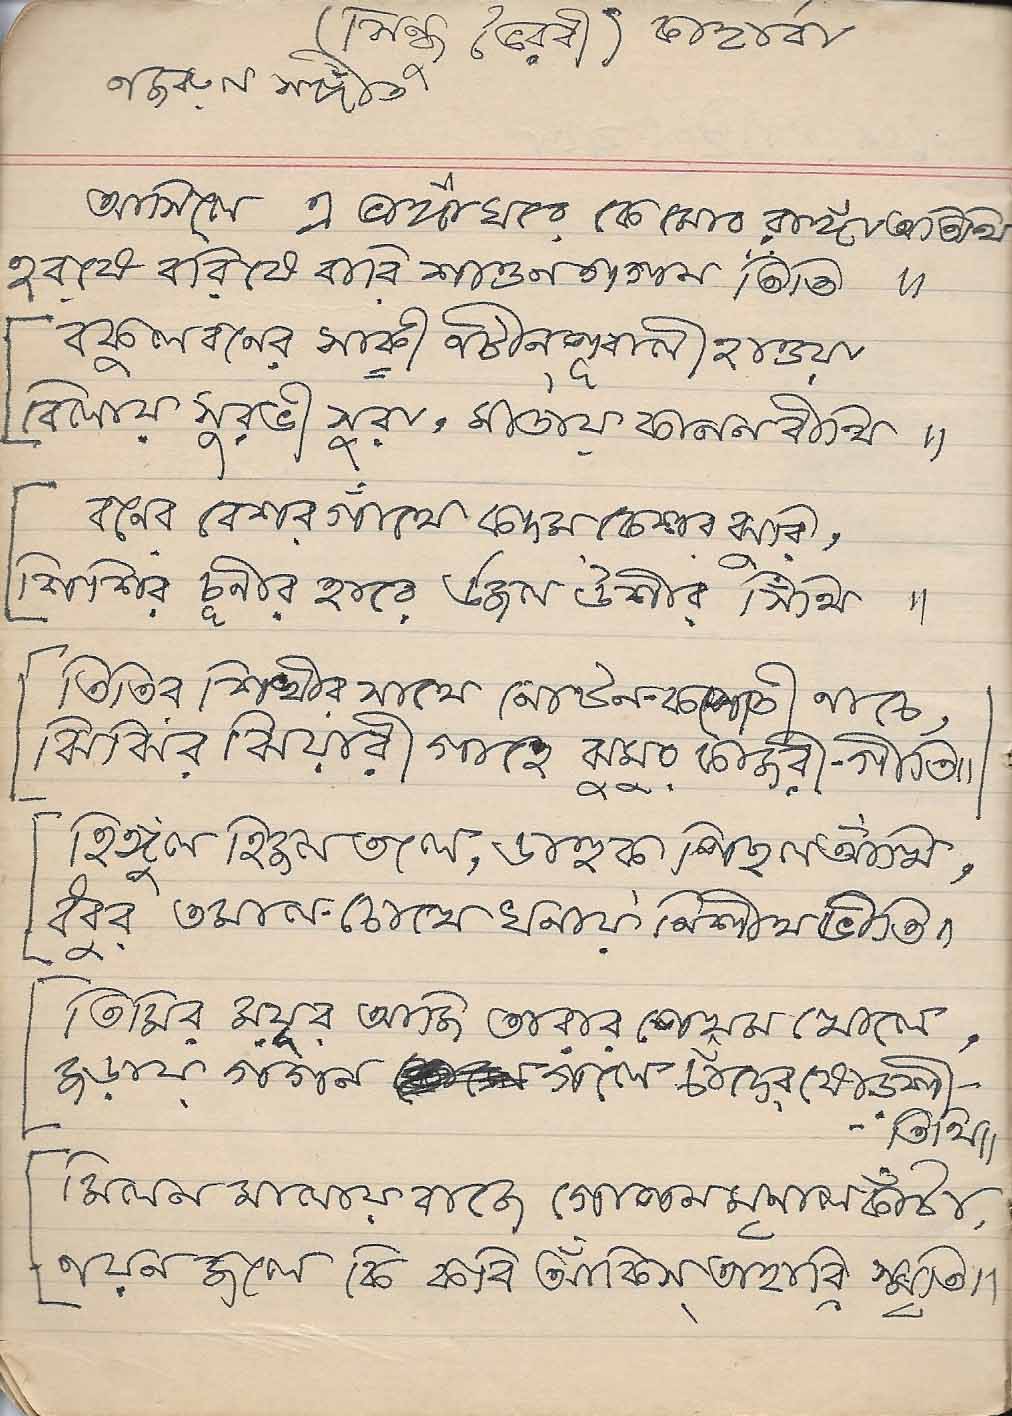 (সিন্ধু ভৈরবী) কাহার্বা
নজরুল সঙ্গীত
আসিলে এ ভাঙ্গা ঘরে কে মোর রাঙ্গা অতিথি
হরষে বরিষে বারি শাওন গগন তিতি ॥
বকুল বনের সাকী নটীন পূবালী হাওয়া
বিলায় সুরভী সুরা, মাতায় কানন বীথি ॥
বনের বেশর গাঁথে কদম কেশর ঝুরি,
শিশির চূনীর হারে উজল উশীর সিঁথি ॥
তিতির শিখীর সাথে নোটন-কপোতী নাচে,
ঝিঁঝির ঝিয়ারী গাহে ঝুমুর কাজরী-গীতি॥
হিঙ্গুল হিজল তলে, ডাহুক পিছল আঁখি,
বঁধুর তমাল-চোখে ঘনায় নিশীথ ভীতি॥
তিমির ময়ূর আজি তারার পেখম খোলে,
জড়ায় গগন গলে চাঁদের ষোড়শী-
- তিথি॥
মিলন মালায় বাজে গোপন মৃনাল কাঁটা,
নয়ন জলে কি কবি আঁকিস্ তাহারি স্মৃতি॥